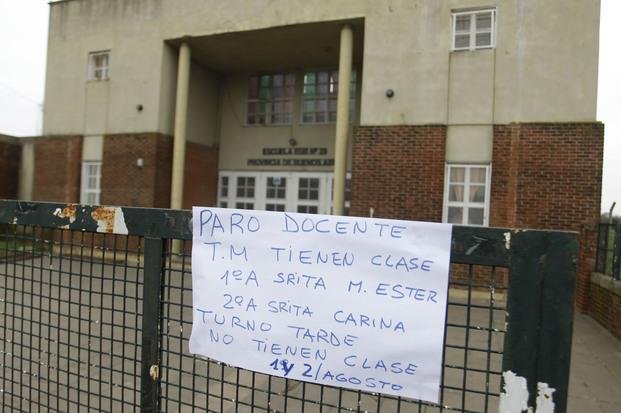 ESCUELA EGB Nº 29
PROVINCIA DE BUENOS AIRES
PARO DOCENTE
T.M TIENEN CLASE
1ºA SRITA M. ESTER
2ºA SRITA CARINA
TURNO TARDE
NO TIENEN CLASE
1º y 2/AGOSTO